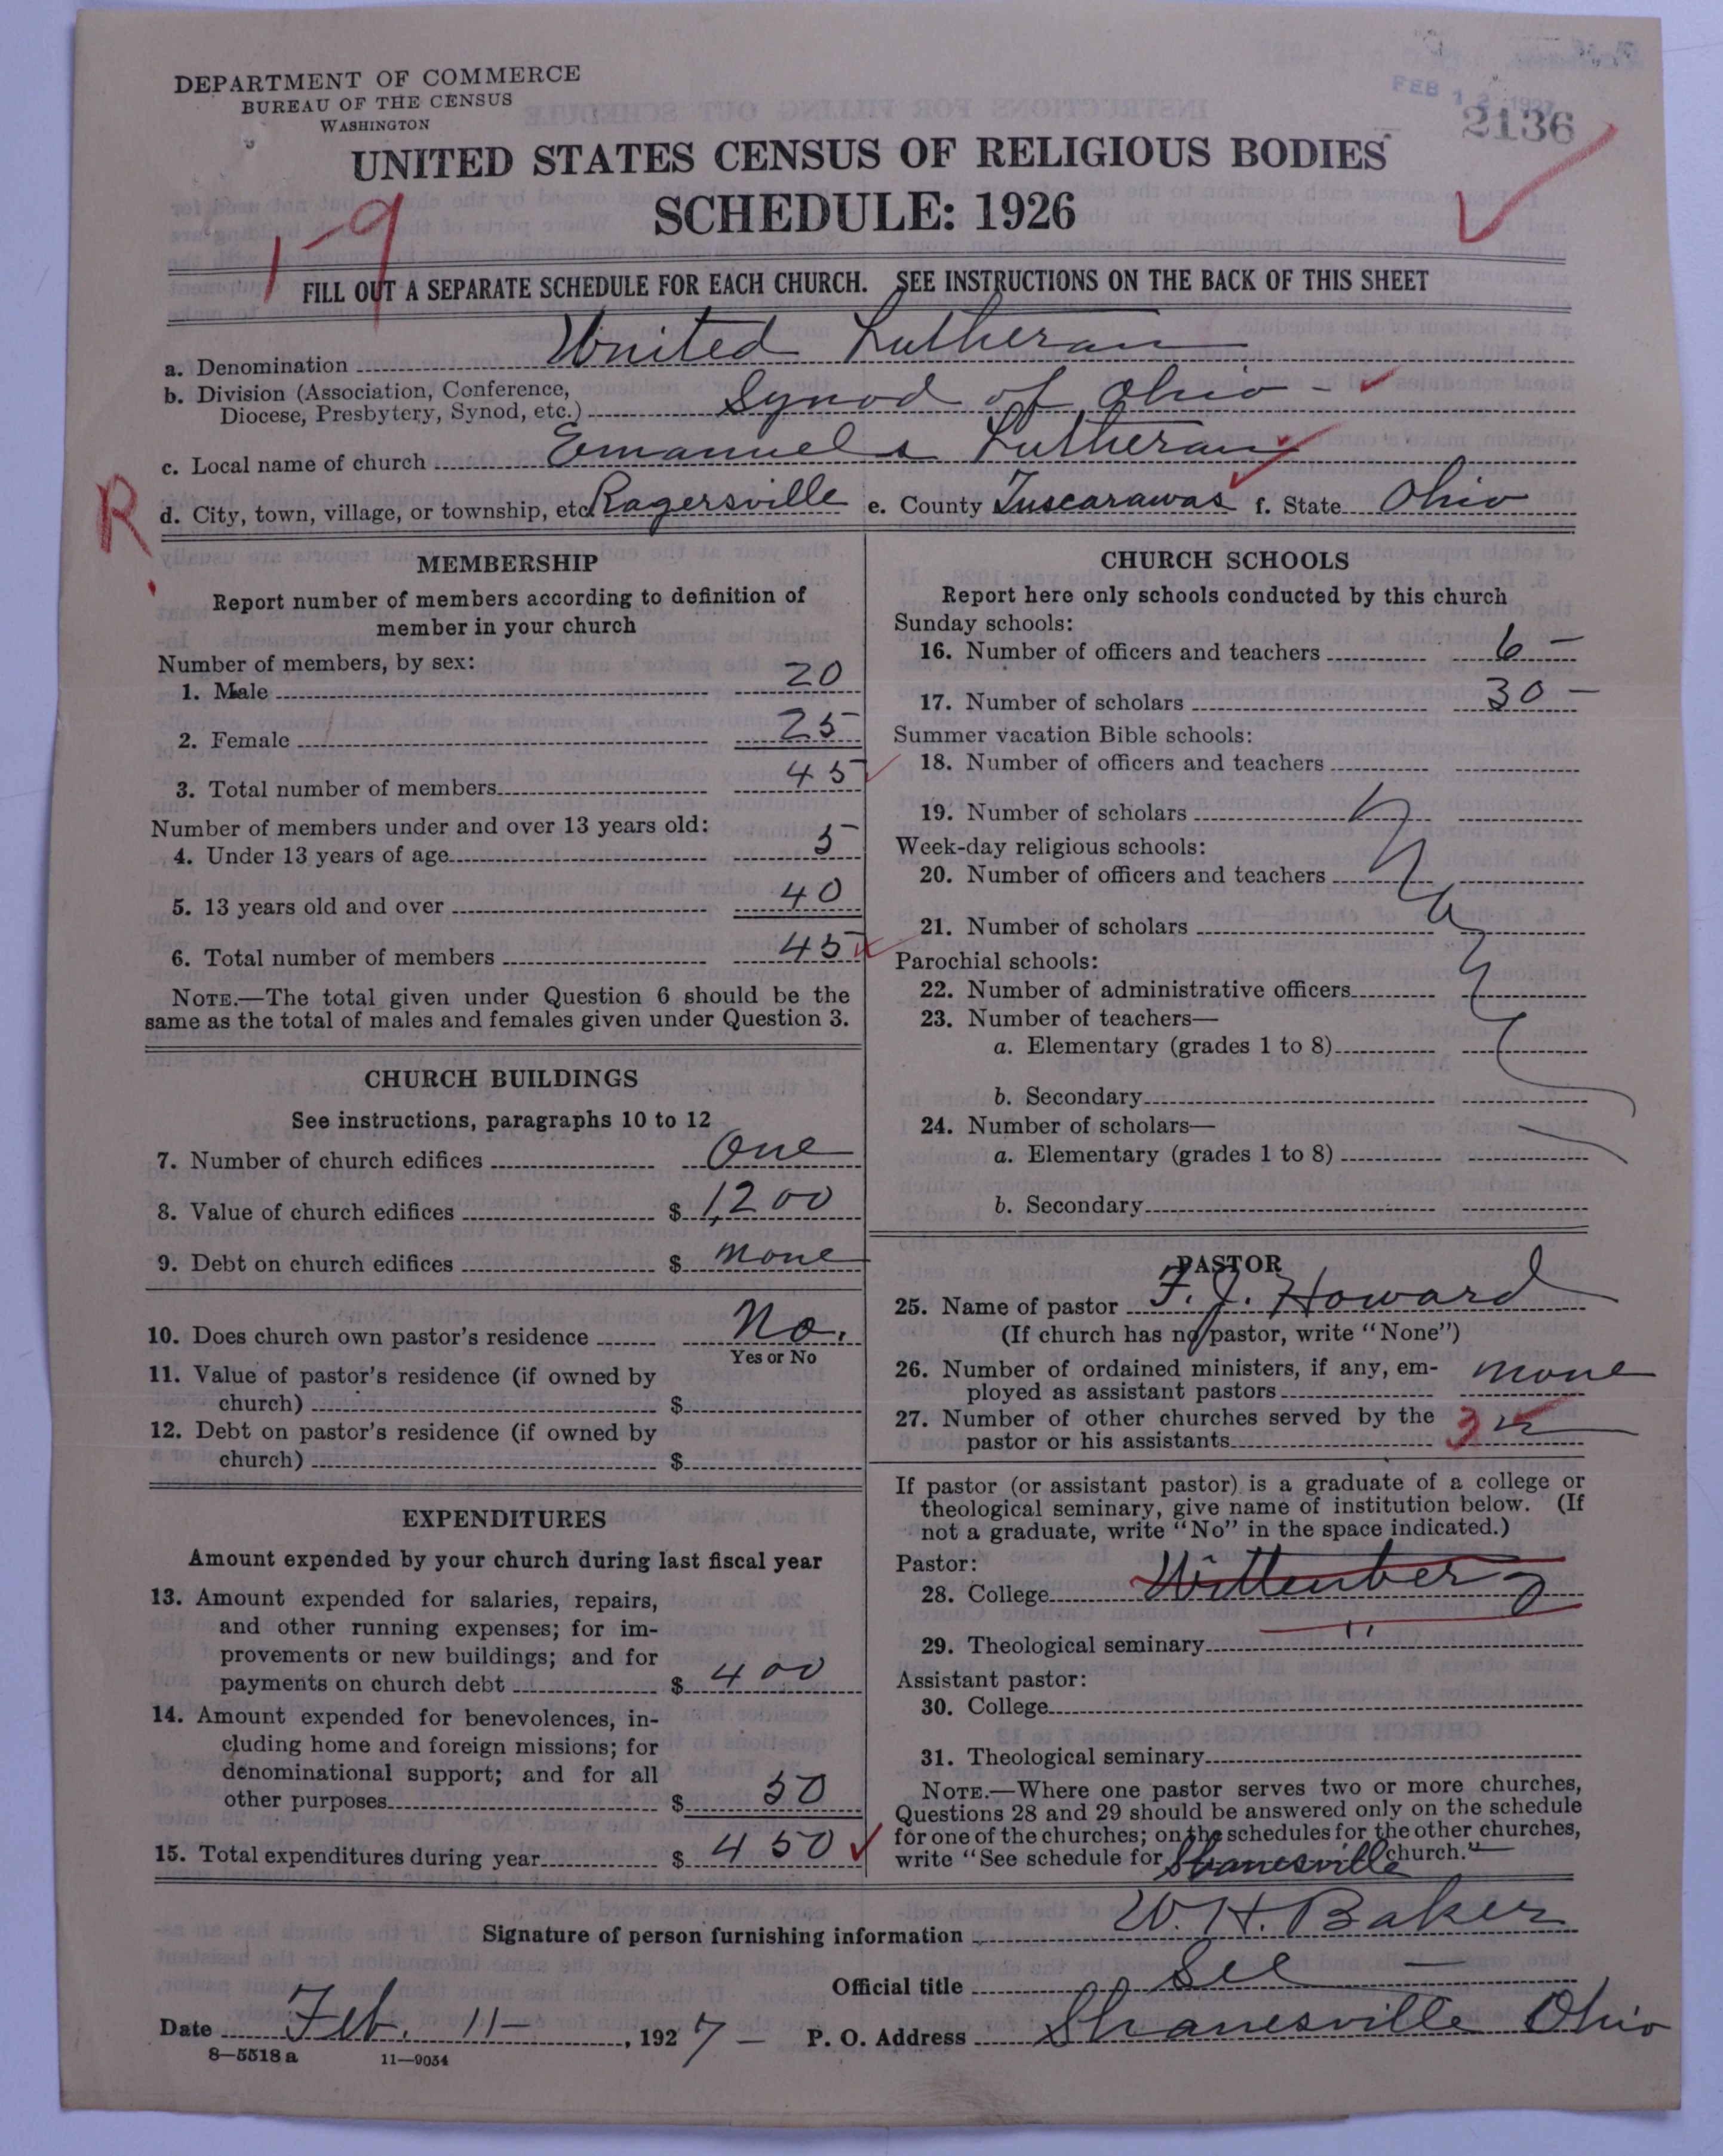 DEPARTMENT OF COMMERCE
BUREAU OF THE CENSUS
WASHINGTON
FEB 12 1927
2136
UNITED STATES CENSUS OF RELIGIOUS BODIES
SCHEDULE: 1926
1-9
FILL OUT A SEPARATE SCHEDULE FOR EACH CHURCH. SEE INSTRUCTIONS ON THE BACK OF THIS SHEET
a. Denomination United Lutheran
b. Division (Association, Conference,
Diocese, Presbytery, Synod, etc.) Synod of Ohio -
c. Local name of church Emanuels Lutheran
R
d. City, town, village, or township, etc. Ragersville e. County Tuscarawas f. State Ohio
MEMBERSHIP
Report number of members according to definition of
member in your church
Number of members, by sex:
1. Male 20
2. Female 25
3. Total number of members 45
Number of members under and over 13 years old:
4. Under 13 years of age 5
5. 13 years old and over 40
6. Total number of members 45
NOTE.—The total given under Question 6 should be the
same as the total of males and females given under Question 3.
CHURCH BUILDINGS
See instructions, paragraphs 10 to 12
7. Number of church edifices One
8. Value of church edifices $ 1,200
9. Debt on church edifices $ none
10. Does church own pastor's residence No.
Yes or No
11. Value of pastor's residence (if owned by
church) $
12. Debt on pastor's residence (if owned by
church) $
EXPENDITURES
Amount expended by your church during last fiscal year
13. Amount expended for salaries, repairs,
and other running expenses; for im-
provements or new buildings; and for
payments on church debt $ 400
14. Amount expended for benevolences, in-
cluding home and foreign missions; for
denominational support; and for all
other purposes $ 50
15. Total expenditures during year $ 450
CHURCH SCHOOLS
Report here only schools conducted by this church
Sunday schools:
16. Number of officers and teachers 6 -
17. Number of scholars 30 -
Summer vacation Bible schools:
18. Number of officers and teachers
19. Number of scholars
Week-day religious schools:
20. Number of officers and teachers
21. Number of scholars
Parochial schools:
22. Number of administrative officers
23. Number of teachers—
a. Elementary (grades 1 to 8)
b. Secondary
24. Number of scholars—
a. Elementary (grades 1 to 8)
b. Secondary
PASTOR
25. Name of pastor F. J. Howard
(If church has no pastor, write "None")
26. Number of ordained ministers, if any, em-
ployed as assistant pastors none
27. Number of other churches served by the
pastor or his assistants 3
If pastor (or assistant pastor) is a graduate of a college or
theological seminary, give name of institution below. (If
not a graduate, write "No" in the space indicated.)
Pastor:
28. College Wittenberg
29. Theological seminary "
Assistant pastor:
30. College
31. Theological seminary
NOTE.—Where one pastor serves two or more churches,
Questions 28 and 29 should be answered only on the schedule
for one of the churches; on the schedules for the other churches,
write "See schedule for Shanesville church."
Signature of person furnishing information W. H. Baker
Official title Sec
Date Feb. 11- , 1927 - P. O. Address Shanesville Ohio
8—5518 a 11—9034